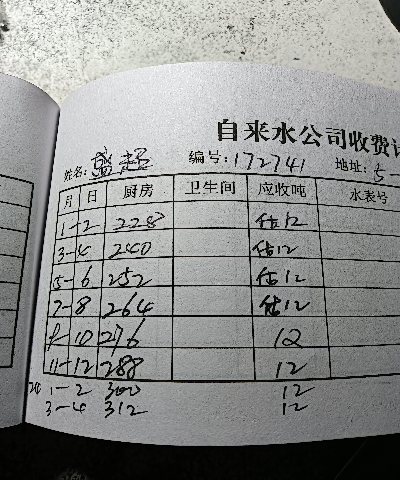 自来水公司收费
姓名: 盛超 编号: 172741 地址: 5-
月 日 厨房 卫生间 应收吨 水表号
1-2 228 估12
3-4 240 估12
5-6 252 估12
7-8 264 估12
9-10 276 12
11-12 288 12
1-2 300 12
3-4 312 12